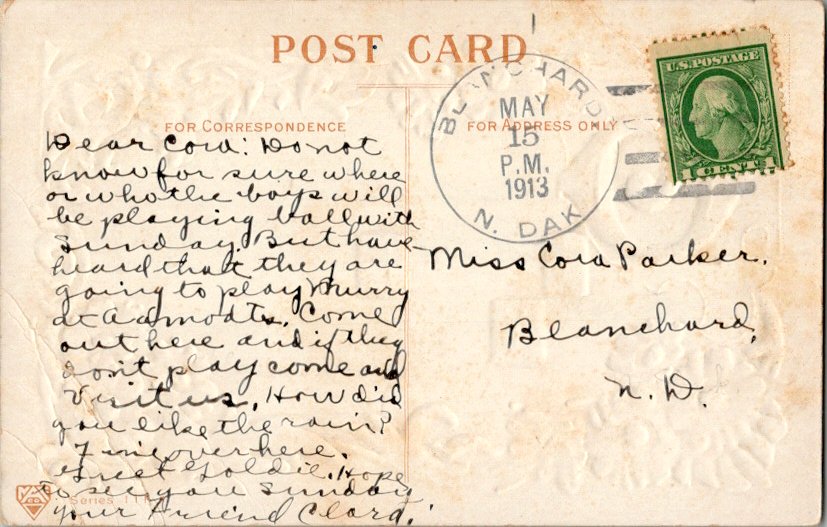 POST CARD
BLANCHARD
MAY
15
P.M.
1913
N. DAK
U.S. POSTAGE
1 CENT 1
FOR CORRESPONDENCE
FOR ADDRESS ONLY
Dear Cora: Do not
know for sure where
or who the boys will
be playing ball with
Sunday. But have
heard that they are
going to play Murry
at Aamodts. Come
out here and if they
don't play come and
visit us. How did
you like the rain?
Fine over here.
Greet Goldie. Hope
to see you Sunday
your Friend Clara.
Miss Cora Parker.
Blanchard,
N. D.
Series